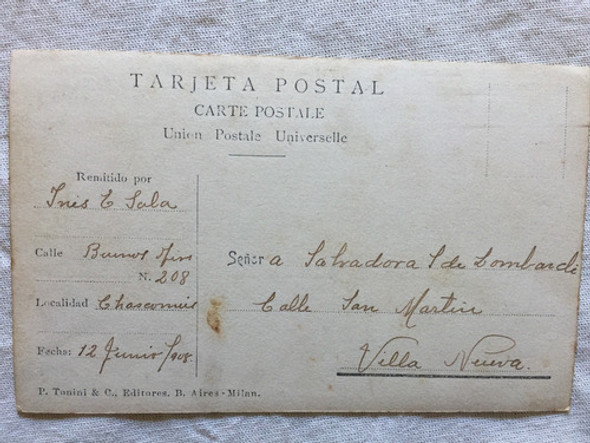 TARJETA POSTAL
CARTE POSTALE
Union Postale Universelle
Remitido por
Ines C Sala
Calle Buenos Aires
N. 208
Localidad Chascomús
Fecha: 12 Junio/908.
P. Tonini & C., Editores. B. Aires - Milan.
Señora Salvadora S de Lombarde
Calle San Martin
Villa Nueva.